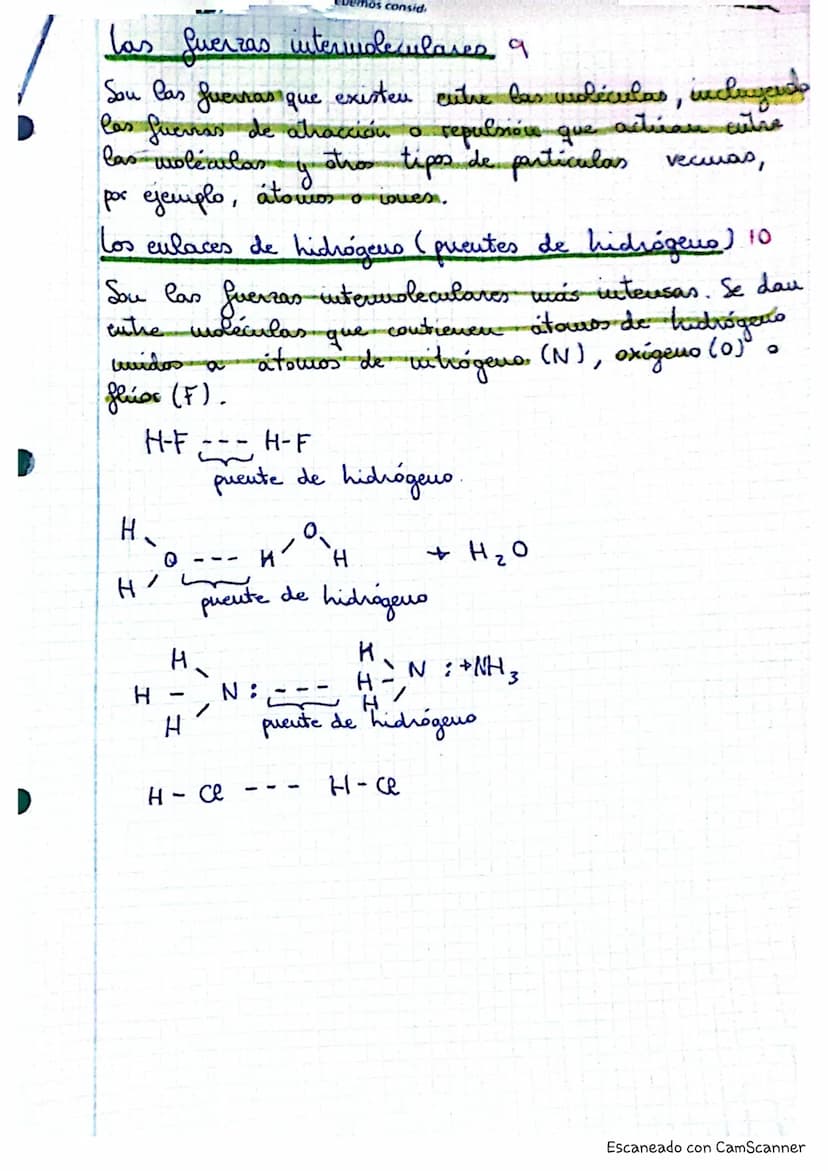 Las fuerzas intermoleculares 9
Son las fuerzas que existen entre las moléculas, incluyendo
las fuerzas de atracción o repulsión que actúan entre
las moléculas y otros tipos de partículas vecinas,
por ejemplo, átomos o iones.
Los enlaces de hidrógeno (puentes de hidrógeno) 10
Son las fuerzas intermoleculares más intensas. Se dan
entre moléculas que contienen átomos de hidrógeno
unidos a átomos de nitrógeno (N), oxígeno (O) o
flúor (F).
H-F --- H-F
puente de hidrógeno.
H O
O --- H H → H2O
H
puente de hidrógeno
H H
H - N: --- H - N : →NH3
H H
puente de hidrógeno
H - Cl --- H - Cl
Escaneado con CamScanner